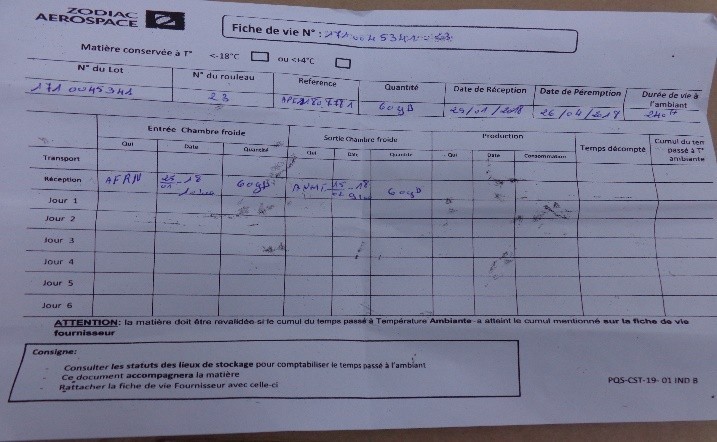 ZODIAC
AEROSPACE
Fiche de vie N° : 1710045341 - 23
Matière conservée à T° <-18°C ou <+4°C
N° du Lot N° du rouleau Reference Quantité Date de Réception Date de Péremption Durée de vie à l'ambiant
1710045341 23 60 25/01/2018 26/04/2018 240H
Entrée Chambre froide Sortie Chambre froide Production Temps décompté Cumul du tem passé à T° ambiante
Qui Date Quantité Qui Date Quantité Qui Date Consommation
Transport
Réception AFRN 25 01 - 18 15 02 - 18
Jour 1
Jour 2
Jour 3
Jour 4
Jour 5
Jour 6
ATTENTION: la matière doit être revalidée si le cumul du temps passé à Température Ambiante a atteint le cumul mentionné sur la fiche de vie
fournisseur
Consigne:
- Consulter les statuts des lieux de stockage pour comptabiliser le temps passé à l'ambiant
- Ce document accompagnera la matière
- Rattacher la fiche de vie Fournisseur avec celle-ci
PQS-CST-19- 01 IND B